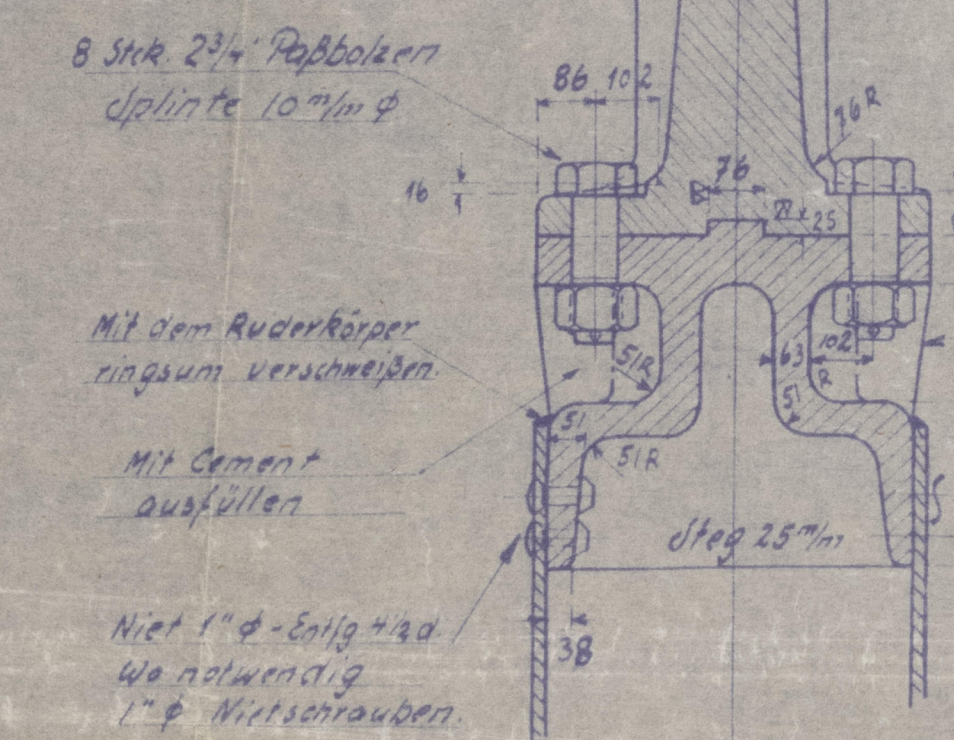 8 Stck. 2 3/4" Paßbolzen
Splinte 10 m/m ϕ
86 102
76 R
16
76
25
Mit dem Ruderkörper
ringsum verschweißen.
51R
63
102
R
51
51
51R
Mit Cement
ausfüllen
Steg 25 m/m
Niet 1" ϕ - Entfg 4 1/2 d.
Wo notwendig
1" ϕ Nietschrauben.
38